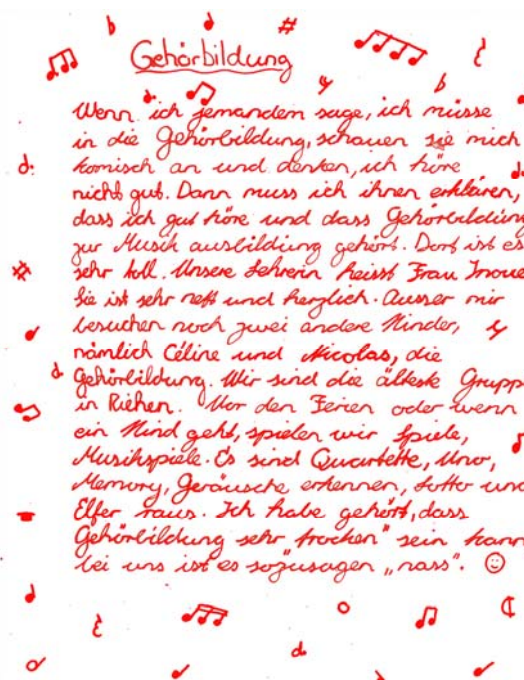 Gehörbildung
Wenn ich jemandem sage, ich müsse
in die Gehörbildung, schauen sie mich
komisch an und denken, ich höre
nicht gut. Dann muss ich ihnen erklären,
dass ich gut höre und dass Gehörbildung
zur Musik ausbildung gehört. Dort ist es
sehr toll. Unsere Lehrerin heisst Frau Inoue
Sie ist sehr nett und herzlich. Ausser mir
besuchen noch zwei andere Kinder,
nämlich Céline und Nicolas, die
Gehörbildung. Wir sind die älteste Grupp
in Riehen. Vor den Ferien oder wenn
ein Kind geht, spielen wir Spiele,
Musikspiele. Es sind Quartette, Uno,
Memory, Geräusche erkennen, Lotto und
Elfer raus. Ich habe gehört, dass
Gehörbildung sehr "trocken" sein kann
bei uns ist es sozusagen „nass". ☺